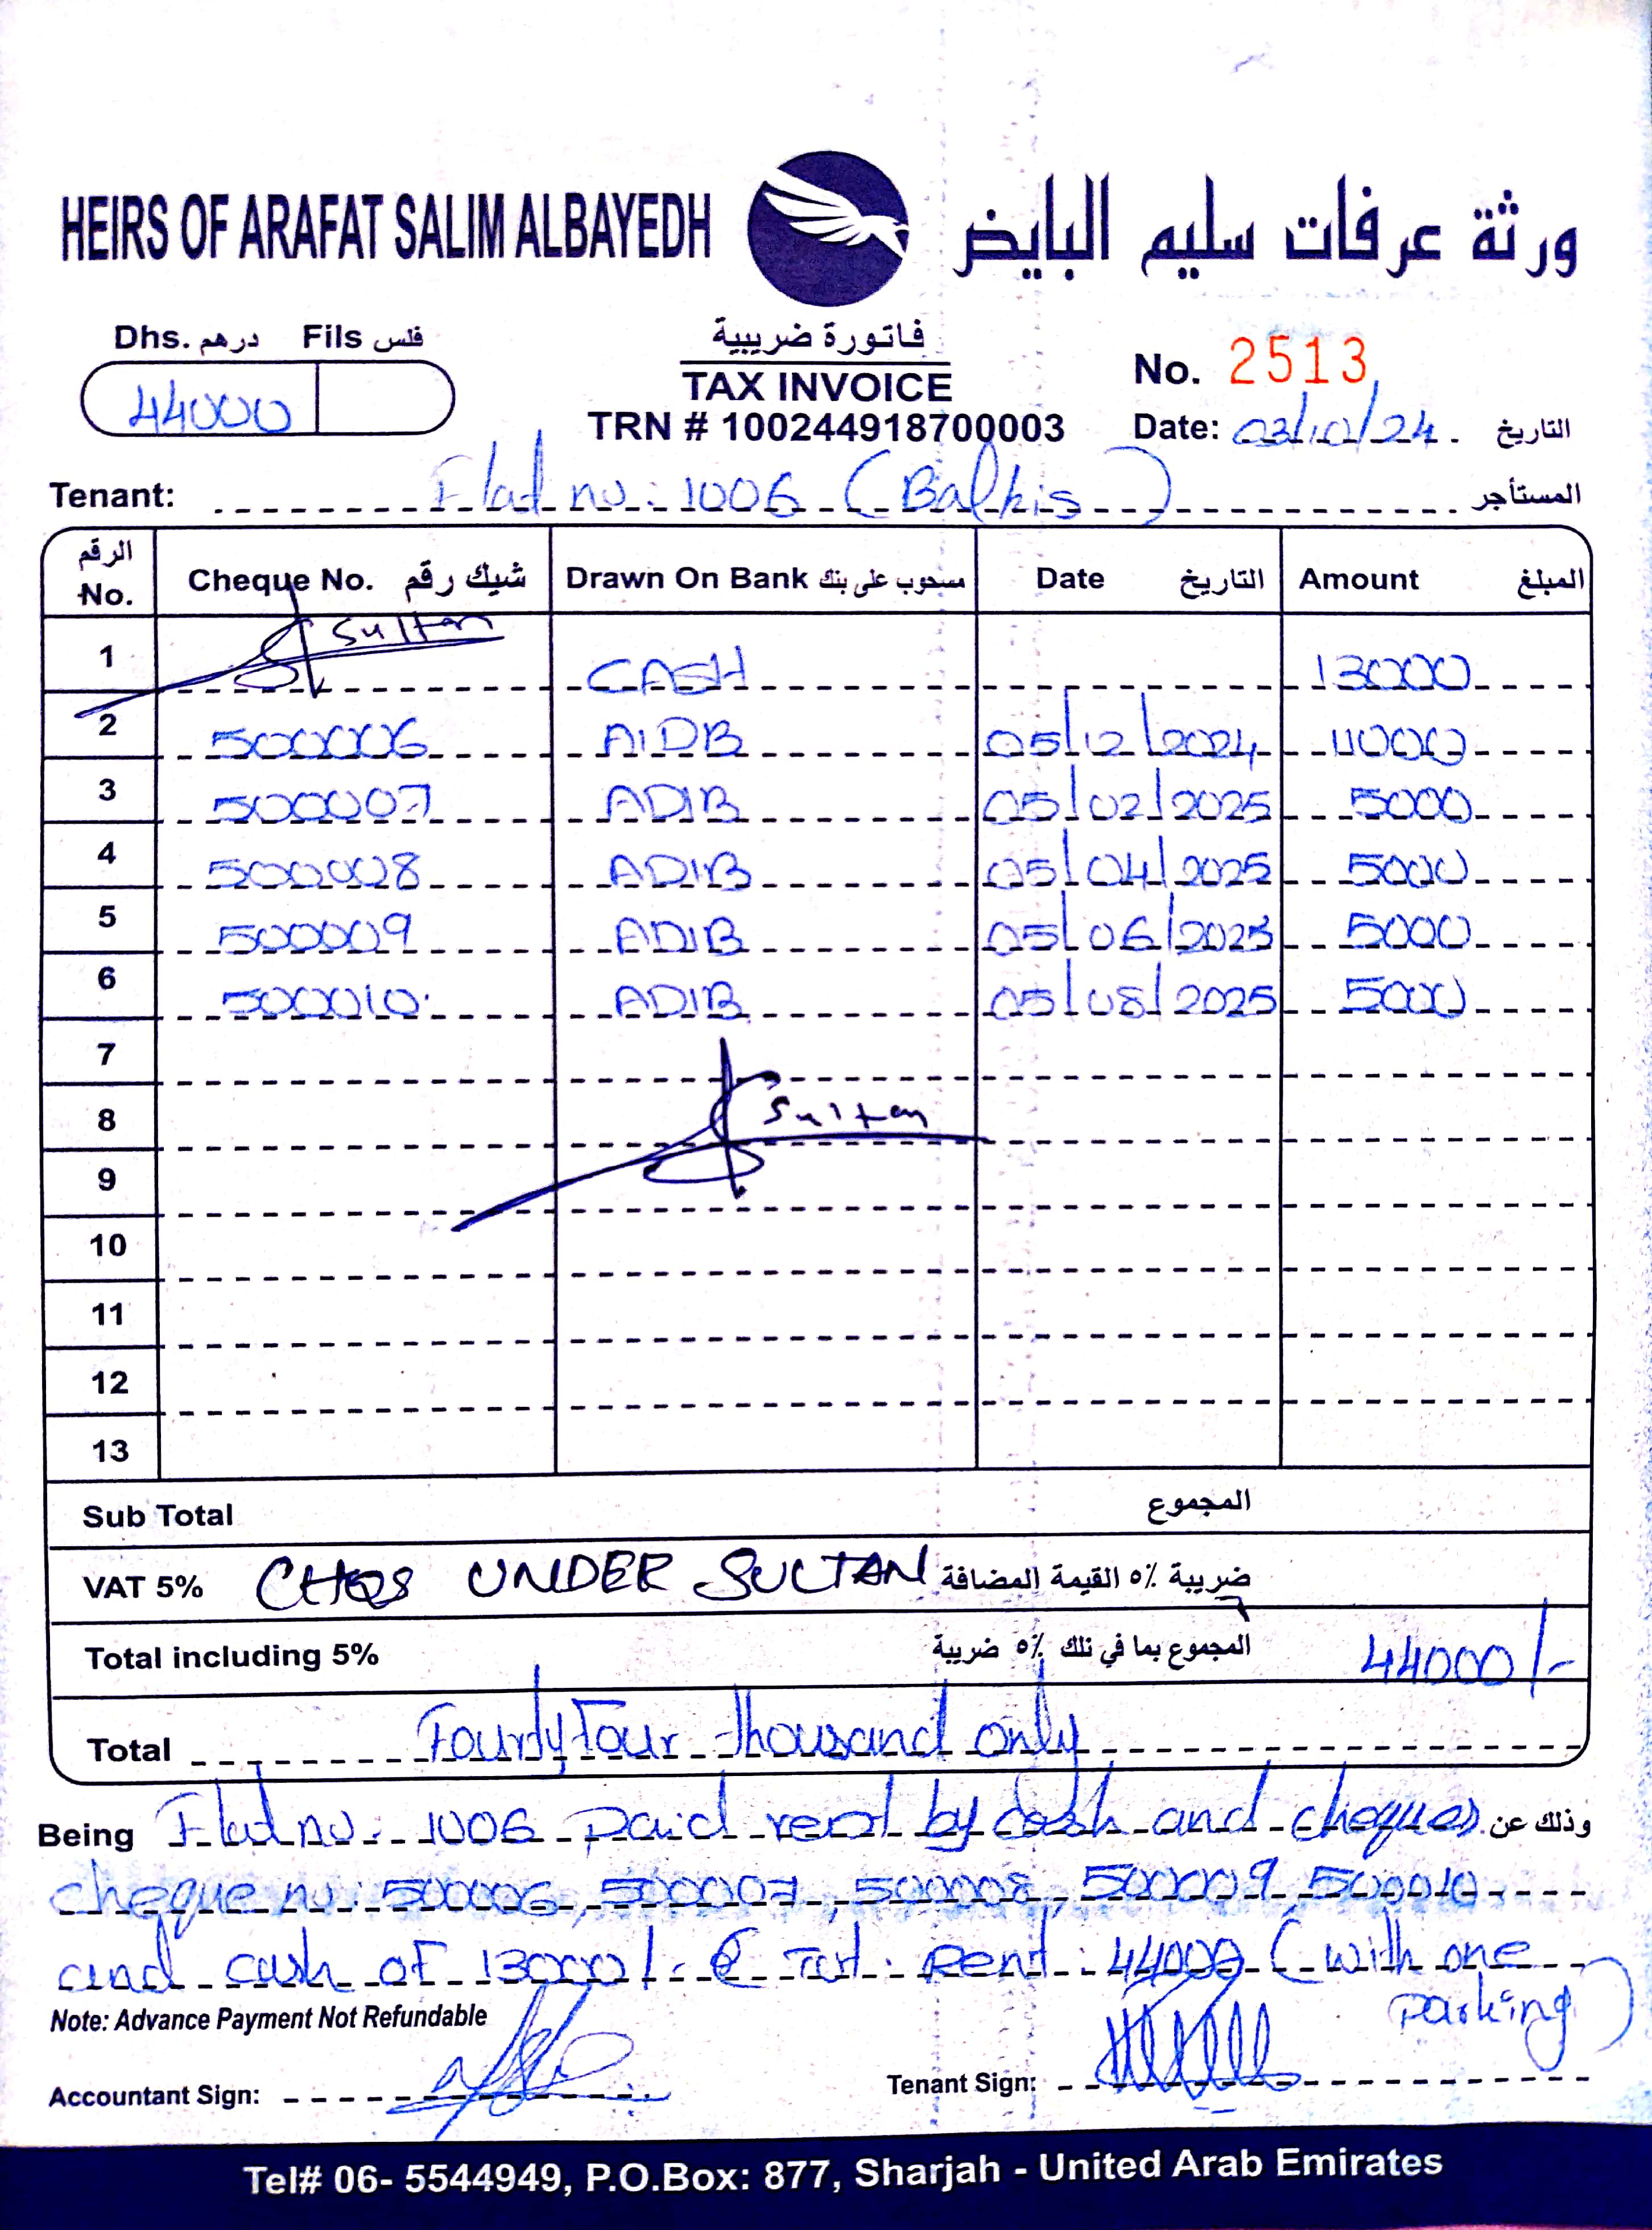 HEIRS OF ARAFAT SALIM ALBAYEDH ورثة عرفات سليم البايض
Dhs. درهم Fils فلس
44000
فاتورة ضريبية
TAX INVOICE
TRN # 100244918700003
No. 2513
Date: 03/10/24. التاريخ
Tenant: Flat no: 1006 (Balkis) المستأجر
الرقم No. Cheque No. شيك رقم Drawn On Bank مسحوب على بنك Date التاريخ Amount المبلغ
1 Sultan CASH 13000
2 500006 AIDB 05/12/2024 11000
3 500007 ADIB 05/02/2025 5000
4 500008 ADIB 05/04/2025 5000
5 500009 ADIB 05/06/2025 5000
6 500010 ADIB 05/08/2025 5000
7
8 Sultan
9
10
11
12
13
Sub Total المجموع
VAT 5% CHQS UNDER SULTAN ضريبة ٥٪ القيمة المضافة
Total including 5% المجموع بما في ذلك ٥٪ ضريبة 44000/-
Total Fourtyfour thousand only
Being Flat no: 1006 paid rent by cash and cheques وذلك عن
cheque no: 500006, 500007, 500008, 500009, 500010
and cash of 13000/- Tot. Rent: 44000 (with one
parking)
Note: Advance Payment Not Refundable
Accountant Sign: Tenant Sign:
Tel# 06- 5544949, P.O.Box: 877, Sharjah - United Arab Emirates